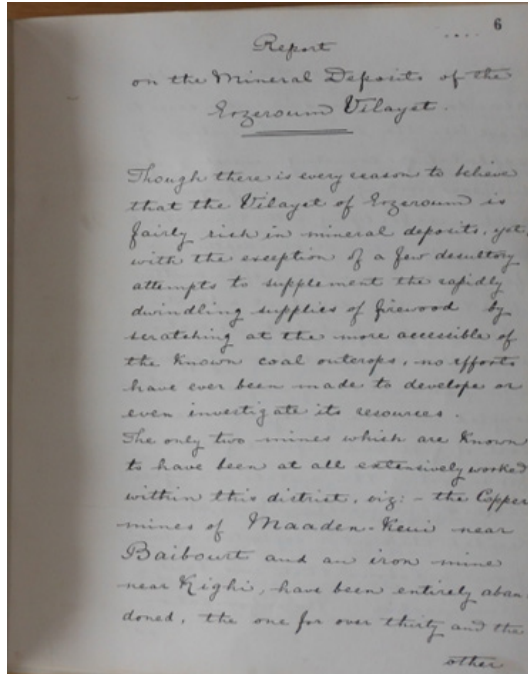 6
Report
on the Mineral Deposits of the
Erzeroum Vilayet.
Though there is every reason to believe
that the Vilayet of Erzeroum is
fairly rich in mineral deposits, yet,
with the exception of a few desultory
attempts to supplement the rapidly
dwindling supplies of firewood by
scratching at the more accessible of
the known coal outcrops, no efforts
have ever been made to develope or
even investigate its resources.
The only two mines which are known
to have been at all extensively worked
within this district, viz: - the Copper
mines of Maaden-Keui near
Baibourt and an iron mine
near Kighi, have been entirely aban-
doned, the one for over thirty and the
other